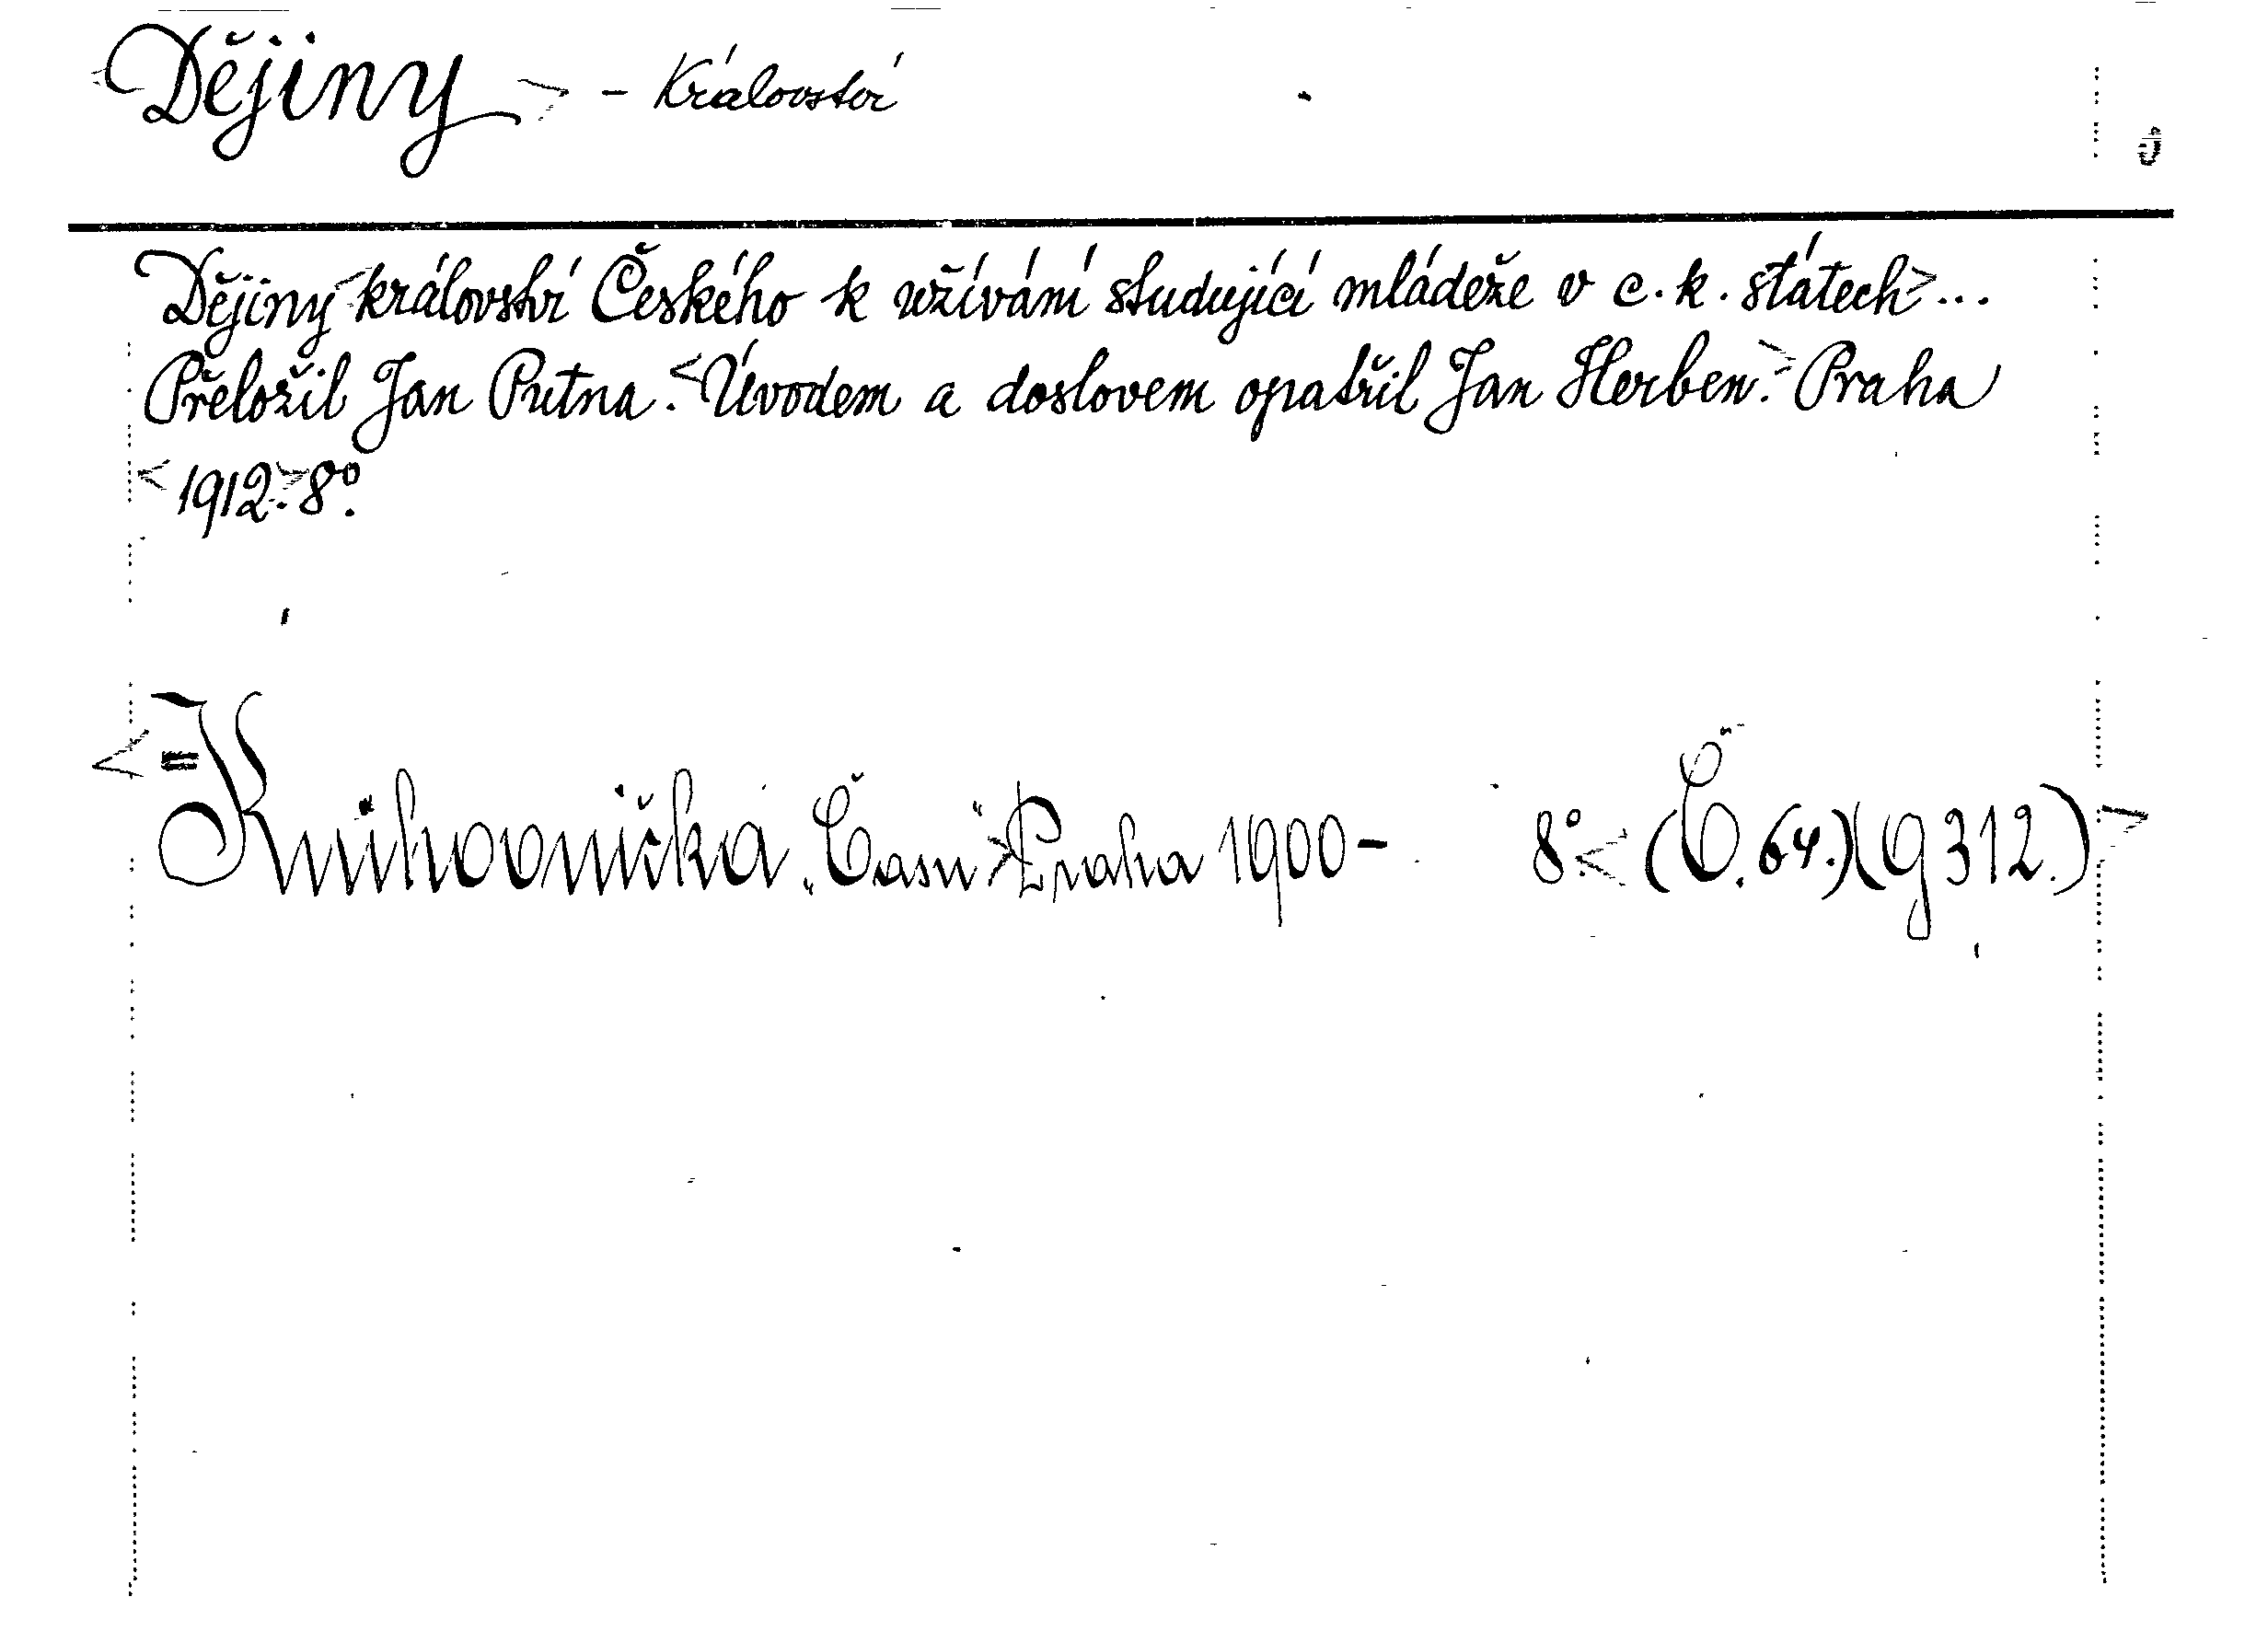 <Dějiny> - Království
Dějiny <království Českého k užívání studující mládeže v c. k. státech> ...
Přeložil Jan Putna. <Úvodem a doslovem opatřil Jan Herben.> Praha
<1912.> 8º.
<= Knihovnička „Času“> Praha 1900- 8º. <(Č. 64.)(g 312.)>